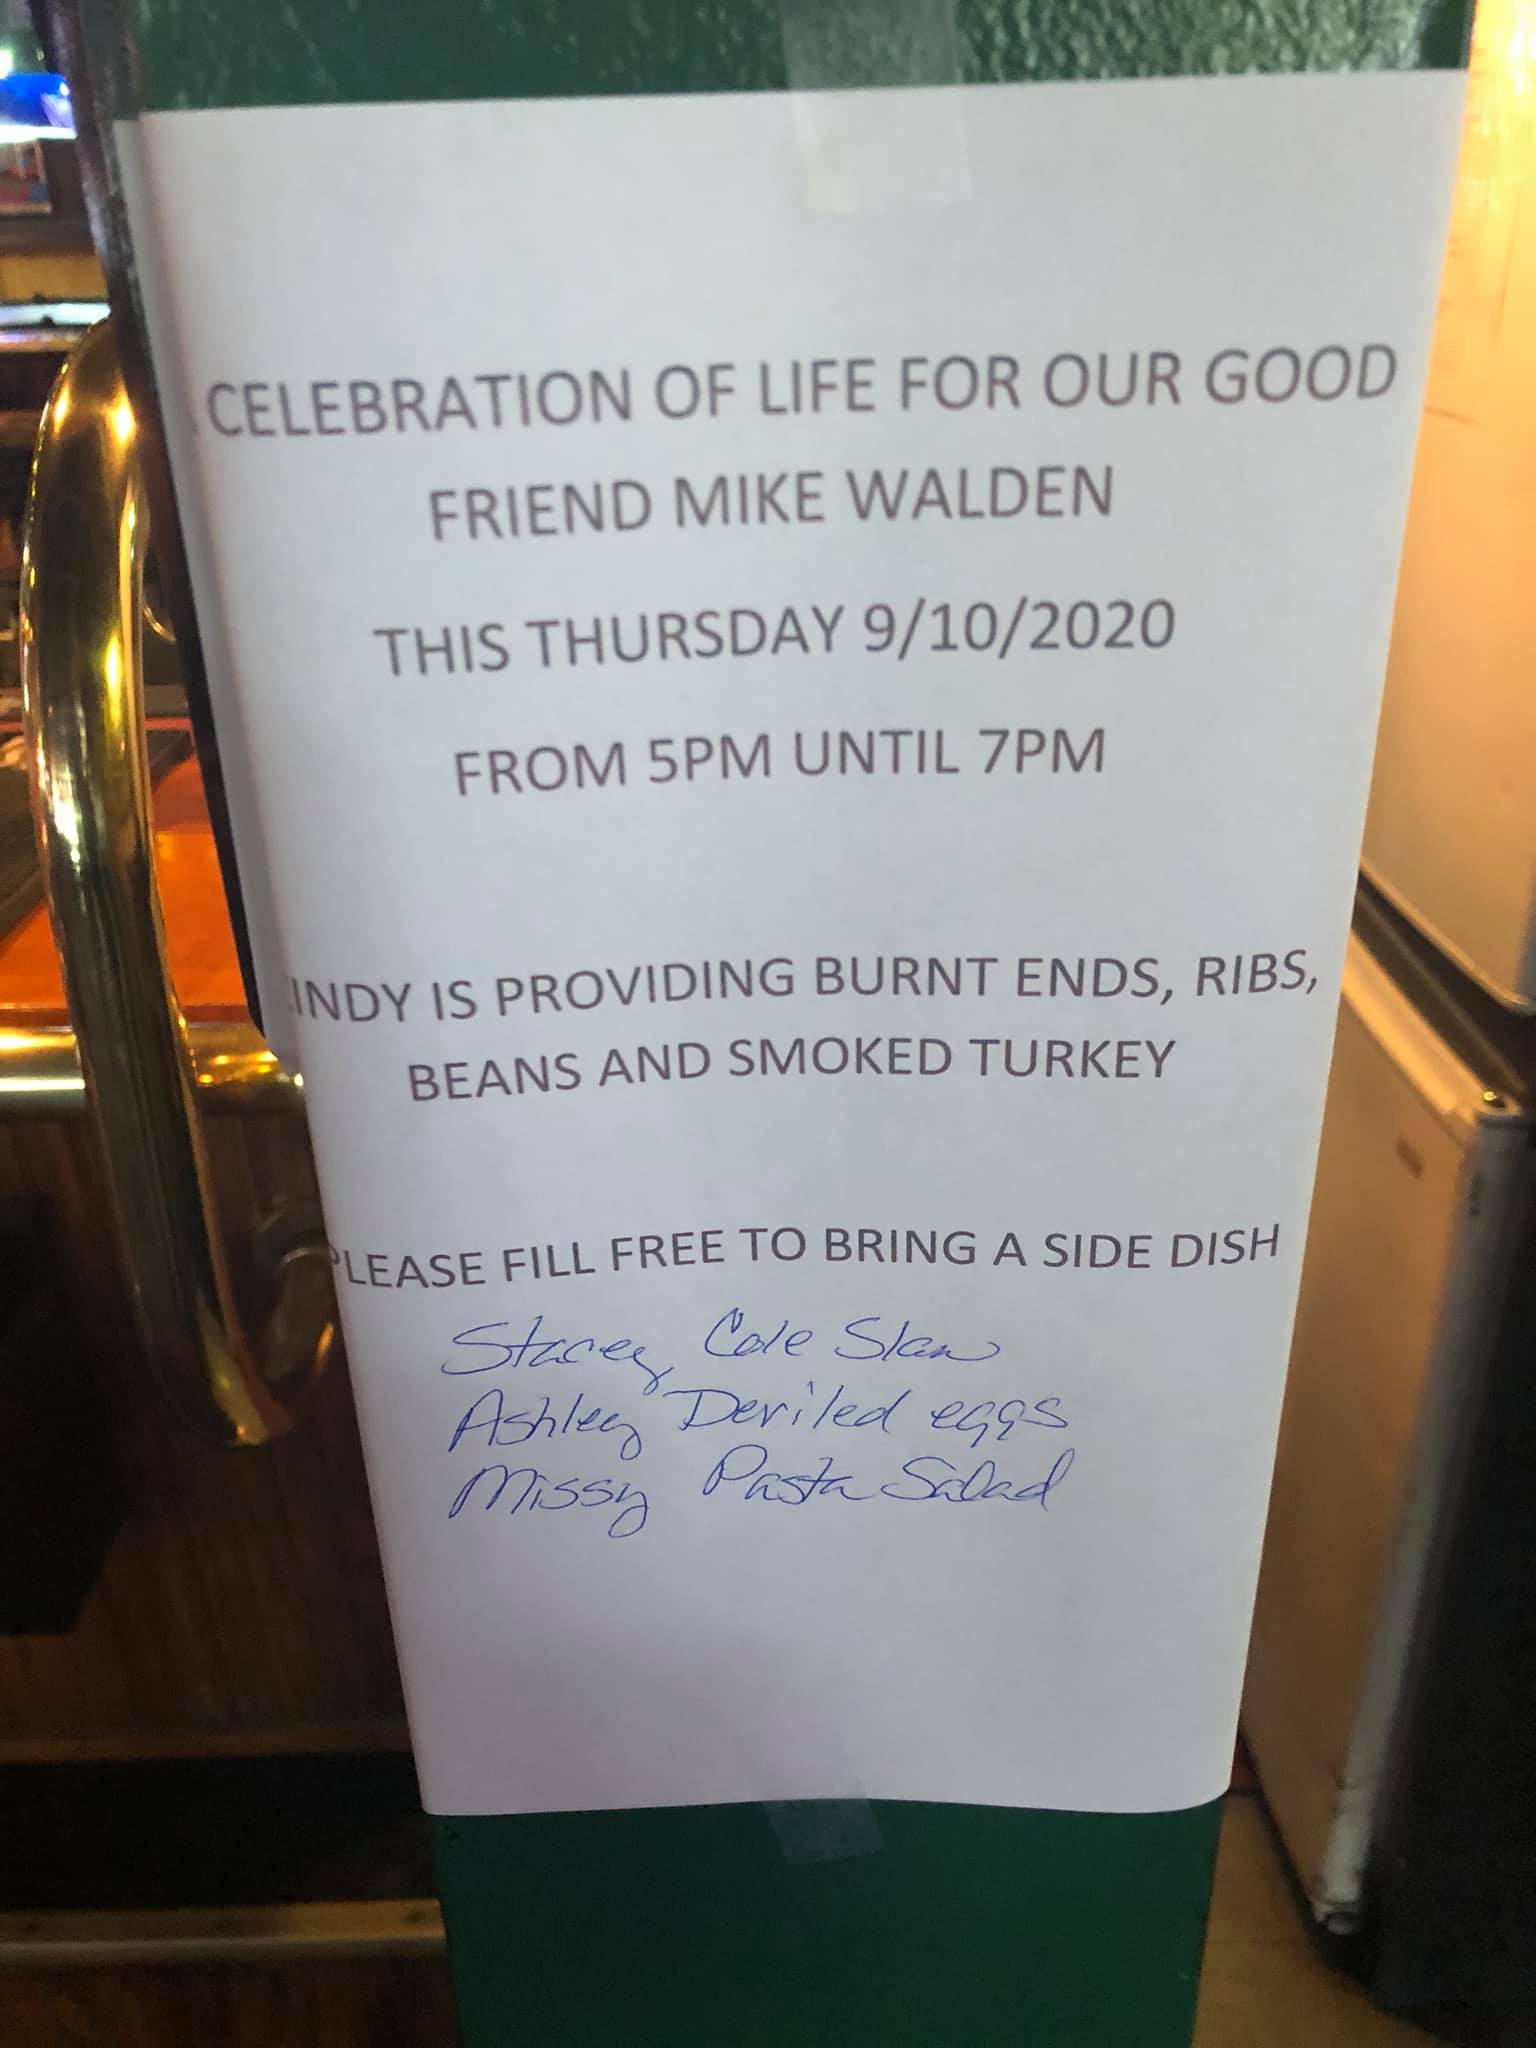 CELEBRATION OF LIFE FOR OUR GOOD
FRIEND MIKE WALDEN
THIS THURSDAY 9/10/2020
FROM 5PM UNTIL 7PM
INDY IS PROVIDING BURNT ENDS, RIBS,
BEANS AND SMOKED TURKEY
PLEASE FILL FREE TO BRING A SIDE DISH
Stacey Cole Slaw
Ashley Deviled eggs
Missy Pasta Salad